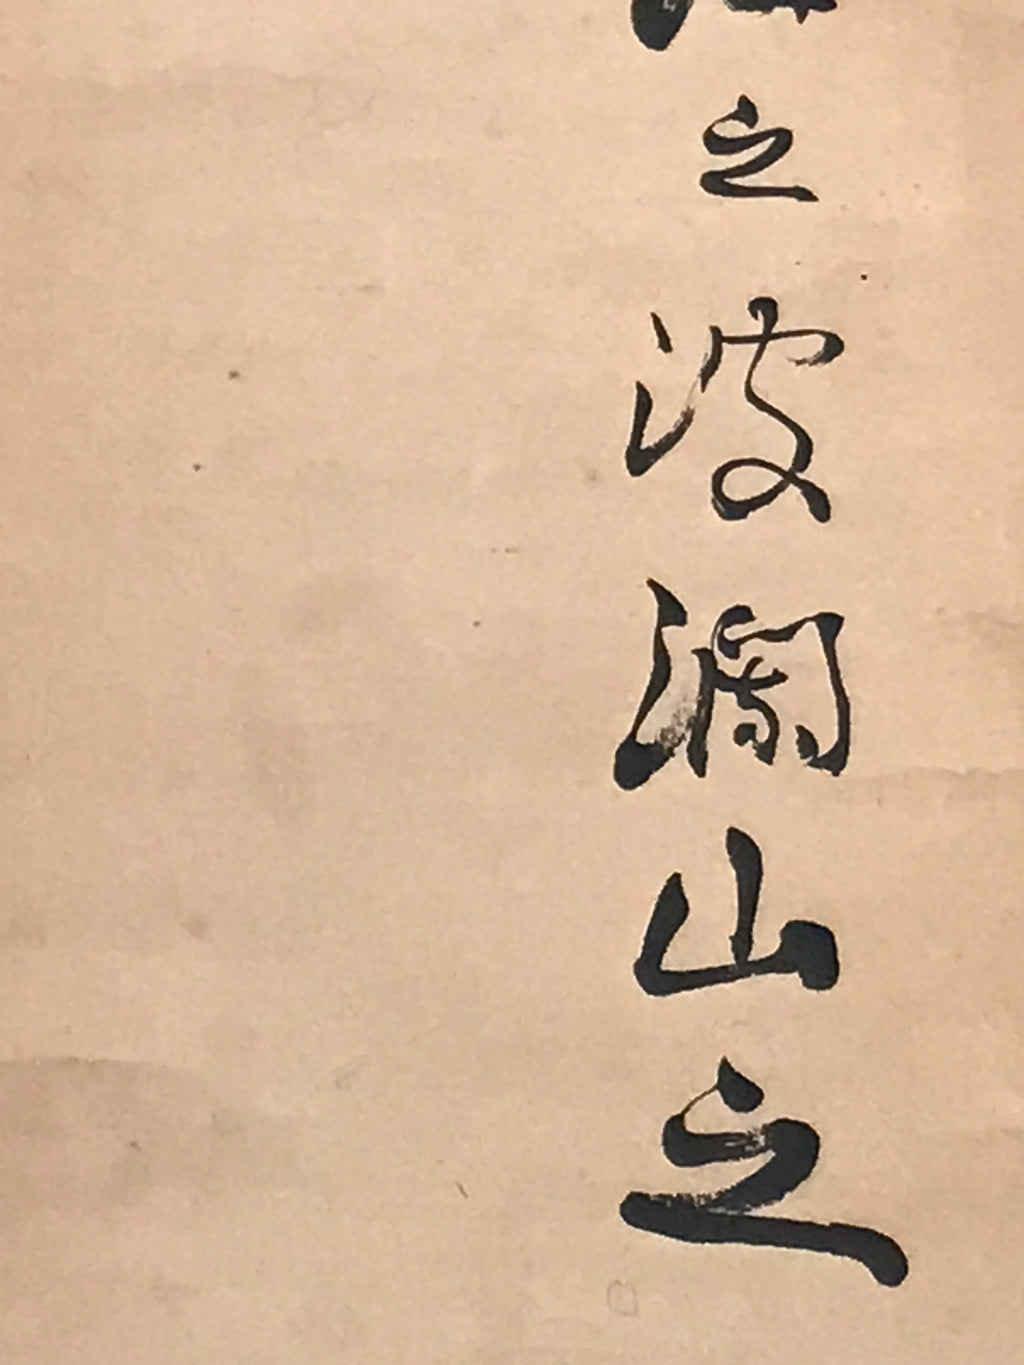 之波瀾山之